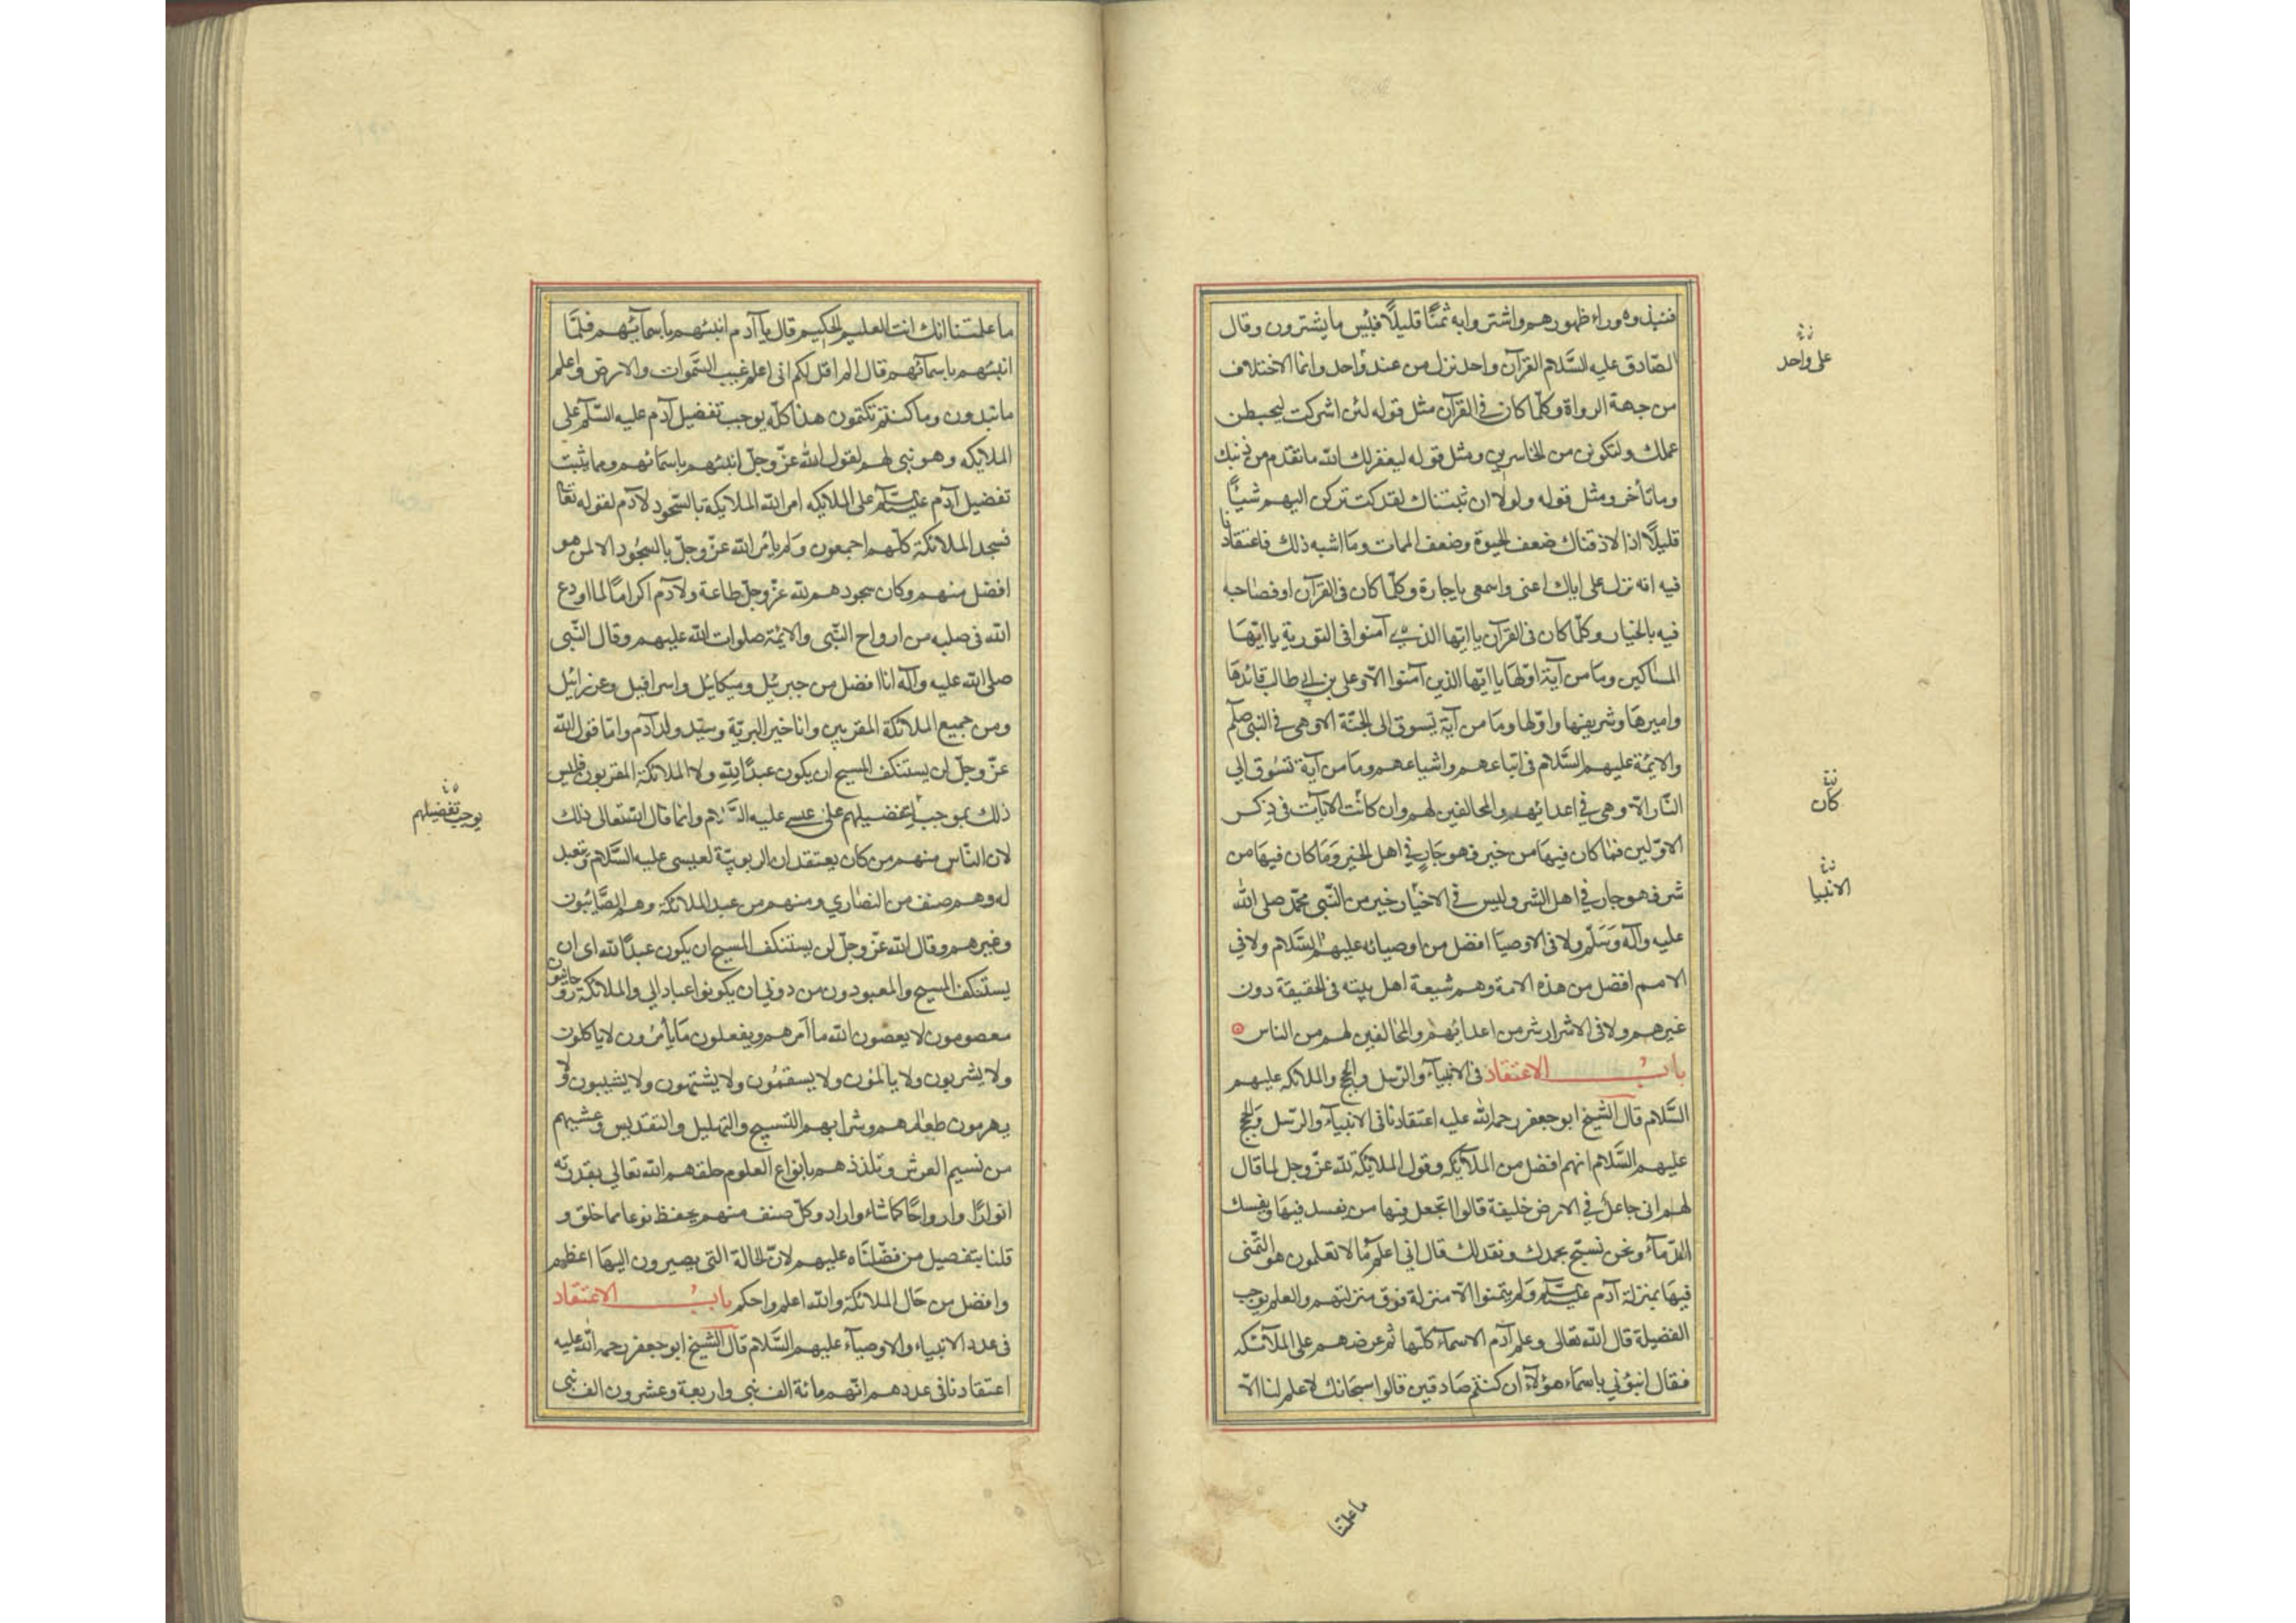 فنبذوه وراء ظهورهم واشتروا به ثمنًا قليلًا فبئس ما يشترون وقال
الصّادق عليه السَّلام القرآن واحد نزل من عند واحد وانما الاختلاف
على واحد
من جهة الرواة وكلّما كان في القرآن مثل قوله لئن اشركت ليحبطن
عملك ولتكونن من الخاسرين ومثل قوله ليغفر لك الله ما تقدم من ذنبك
وما تأخر ومثل قوله ولولا ان ثبتناك لقد كدت تركن اليهم شيئًا
قليلًا اذا لاذقناك ضعف الحيوة وضعف الممات وما اشبه ذلك فاعتقادنا
فيه انه نزل على اياك اعنى واسمعى يا جارة وكلّما كان فى القرآن او فصاحبه
فيه بالخيار وكلّما كان فى القرآن يا ايّها الذين آمنوا فى التورية يا ايّها
المساكين وما من آية اوّلها يا ايّها الذين آمنوا الّا وعلى بن ابي طالب قائدها
واميرها وشريفها واوّلها وما من آية تسوق الى الجنّة الا وهى في النبى صلّم
والايمّة عليهم السَّلام فى اتباعهم واشياعهم وما من آية تسوق الى
النّار الّا وهى في اعدائهم والمخالفين لهم وان كانت الايآت فى ذكر
كان
الاوّلين فما كان فيها من خير فهو جارٍ في اهل الخير وما كان فيها من
شر فهو جار في اهل الشر وليس في الاخيار خير من النّبى محمّد صلى الله
الانبيا
عليه وآله وَسَلّم ولا فى الاوصيا افضل من اوصيائه عليهم السَّلام ولا في
الامم افضل من هذه الامة وهم شيعة اهل بيته فى الحقيقة دون
غيرهم ولا فى الاشرار شر من اعدائهم والمخالفين لهم من الناس
باب الاعتقاد فى الانبيآء والرّسل والحجج والملائكه عليهم
السَّلام قال الشيخ ابو جعفر رحمه الله عليه اعتقادنا فى الانبيآء والرّسل والحجج
عليهم السَّلام انهم افضل من الملآيكه وقول الملايكة لله عزّ وجل لما قال
لهم انى جاعل في الارض خليفة قالوا اتجعل فيها من يفسد فيها ويفسك
الدّمآء ونحن نسبّح بحمدك ونقدّس لك قال اني اعلم ما لا تعلمون هو التّمنى
فيها بمنزلة آدم عليه السَّلم ولم يتمنوا الّا منزلة فوق منزلتهم والعلم يوجب
الفضيلة قال الله تعالى وعلم آدم الاسمآء كلّها ثم عرضهم على الملآئكه
فقال انبؤني باسماء هؤلآء ان كنتم صادقين قالوا سبحانك لا علم لنا الّا
ما علمتنا
ما علمتنا انك انت العليم الحكيم قال يا آدم انبئهم باسمآئهم فلمّا
انبئهم باسمآئهم قال الم اقل لكم انى اعلم غيب السَّموات والارض واعلم
ما تبدون وما كنتم تكتمون هذا كلّه يوجب تفضيل آدم عليه السَّلم على
الملايكه وهو نبى لهم لقول الله عزّ وجلّ انبئهم باسمائهم ومما يثبت
تفضيل آدم عليه السَّلم على الملايكه امر الله الملايكة بالسّجود لآدم لقوله تعا
فسجد الملائكة كلّهم اجمعون ولم يامر الله عزّ وجلّ بالسجُود الا لمن هو
افضل منهم وكان سجودهم لله عزّ وجلّ طاعة ولآدم اكرامًا لما اودع
الله فى صلبه من ارواح النّبى والايمّة صلوات الله عليهم وقال النّبى
صلى الله عليه وآله انا افضل من جبرئيل وميكائيل واسرافيل وعزرائيل
ومن جميع الملائكة المقربين وانا خير البريّة وسيّد ولد آدم وامّا قول الله
عزّ وجلّ لن يستنكف المسيح ان يكون عبدًا لِلّه ولا الملائكة المقربون فليس
ذلك بموجب لتفضيلهم على عيسى عليه السَّلام وانما قال الله تعالى ذلك
يوجب تفضيلهم
لان النّاس منهم من كان يعتقد ان الربوبيّة لعيسى عليه السَّلام وتعبد
له وهم صنف من النصارى ومنهم من عبد الملائكة وهم الصَّائبون
وغيرهم وقال الله عزّ وجلّ لن يستنكف المسيح ان يكون عبدًا لله اى ان
يستنكف المسيح والمعبودون من دونى ان يكونوا عبادا لي والملائكة روحانيون
معصومون لا يعصون الله ما آمرهم ويفعلون ما يأمرون لا ياكلون
ولا يشربون ولا يالمون ولا يسقمُون ولا يشتهون ولا يشيبون ولا
يهرمون طعامهم وشرابهم التسبيح والتهليل والتقديس وعيشهم
من نسيم العرش وتلذذهم بانواع العلوم خلقهم الله تعالى بقدرته
انوارًا وارواحًا كما شاء واراد وكلّ صنف منهم يحفظ نوعا مما خلق و
قلنا بتفضيل من فضّلناه عليهم لانّ الحالة التى يصيرون اليها اعظم
وافضل من حال الملائكة والله اعلم واحكم باب الاعتقاد
فى عدد الانبياء والاوصيآء عليهم السَّلام قال الشيخ ابو جعفر رحمه الله عليه
اعتقادنا فى عددهم انّهم مائة الف نبى واربعة وعشرون الف نبى